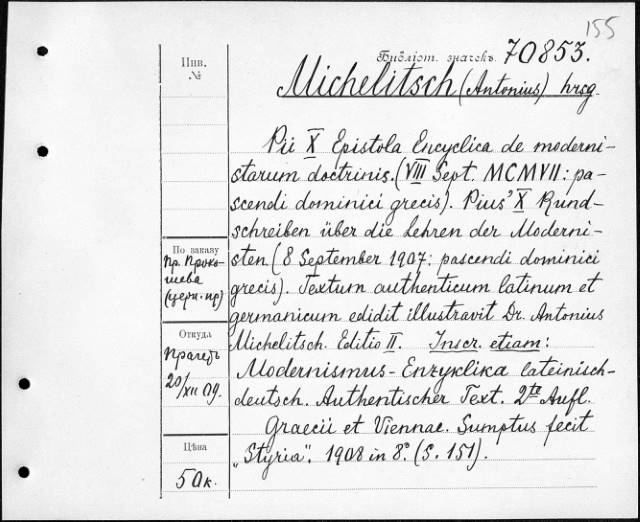 155
Библіот. значекъ 70853.
Инв.
№
Michelitsch (Antonius) hrsg.
Pii X Epistola Encyclica de moderni-
starum doctrinis. (VIII Sept. MCMVII: pa-
scendi dominici grecis). Pius' X Rund-
schreiben über die Lehren der Moderni-
sten (8 September 1907: pascendi dominici
grecis). Textum authenticum latinum et
germanicum edidit illustravit Dr. Antonius
Michelitsch. Editio II. Inscr. etiam:
Modernismus-Enzyklika lateinisch-
deutsch. Authentischer Text. 2te Aufl.
Graecii et Viennae. Sumptus fecit
„Styria". 1908 in 8° (S. 151).
По заказу
пр. Проко-
шева
(церк. пр)
Откуда
Прагеръ
20/XII 09.
Цѣна
50к.